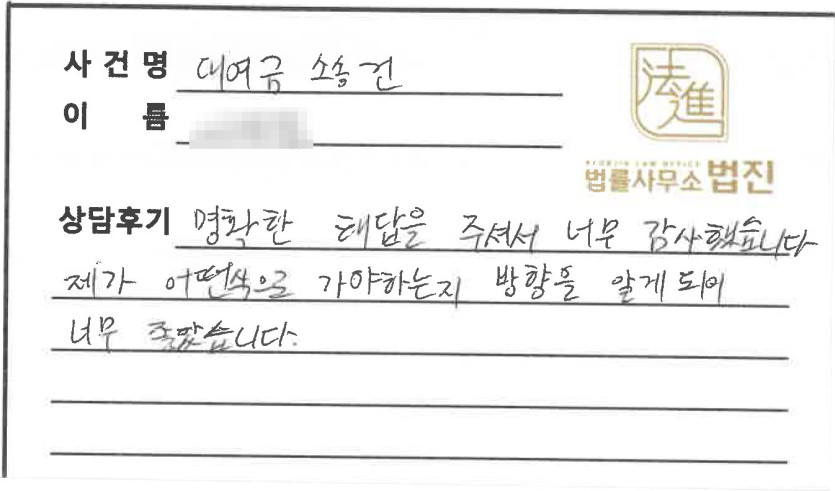 사건명 대여금 소송 건
이 름
法進
BYEOBJIN LAW OFFICE
법률사무소 법진
상담후기 명확한 해답을 주셔서 너무 감사했습니다
제가 어떤식으로 가야하는지 방향을 알게 되어
너무 좋았습니다.